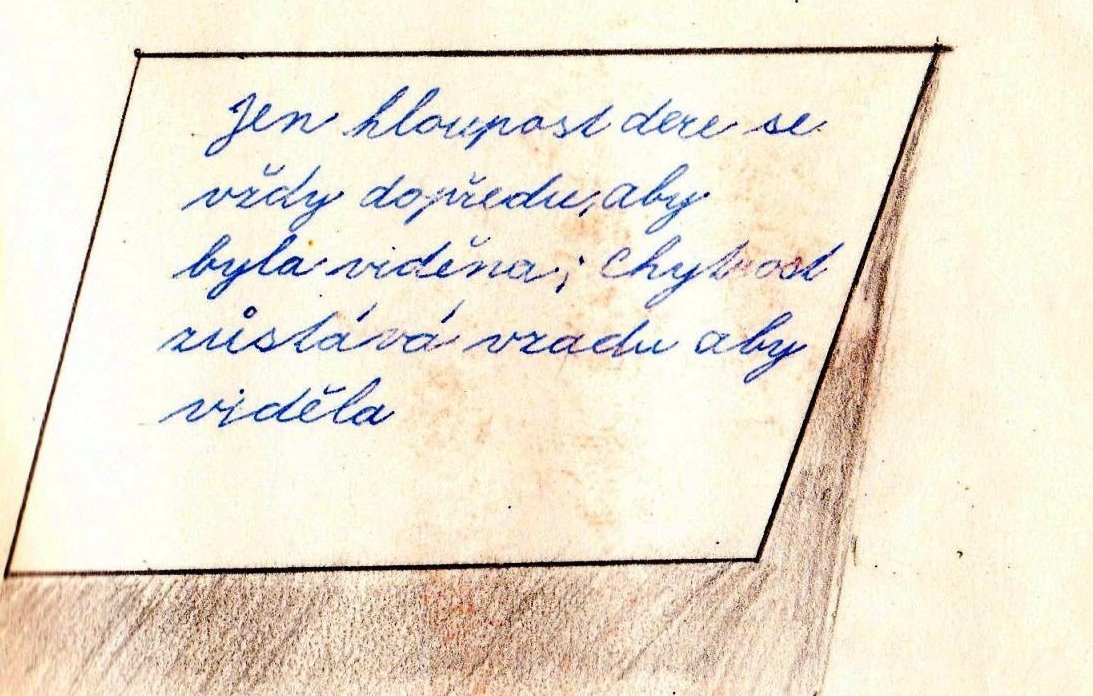 Jen hloupost dere se
vždy dopředu, aby
byla viděna; chytrost
zůstává vzadu aby
viděla